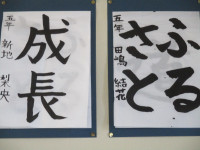 ふる
さと
五年 田嶋 結花
成長
五年 新地 梨央